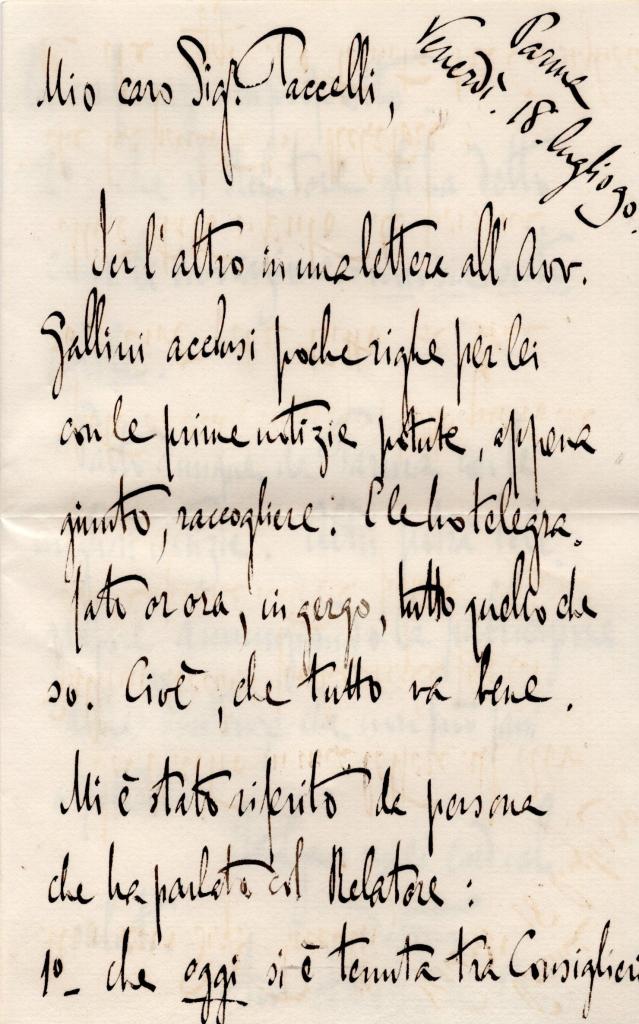 Parma
Venerdì. 18. luglio 90.
Mio caro Sigr. Paccelli,
Ier l'altro in una lettera all'Avv.
Gallini acclusi poche righe per lei
con le prime notizie potute, appena
giunto, raccogliere. E le ho telegra-
fato or ora, in gergo, tutto quello che
so. Cioè, che tutto va bene.
Mi è stato riferito da persona
che ha parlato col Relatore:
1º- che oggi si è tenuta tra Consiglieri